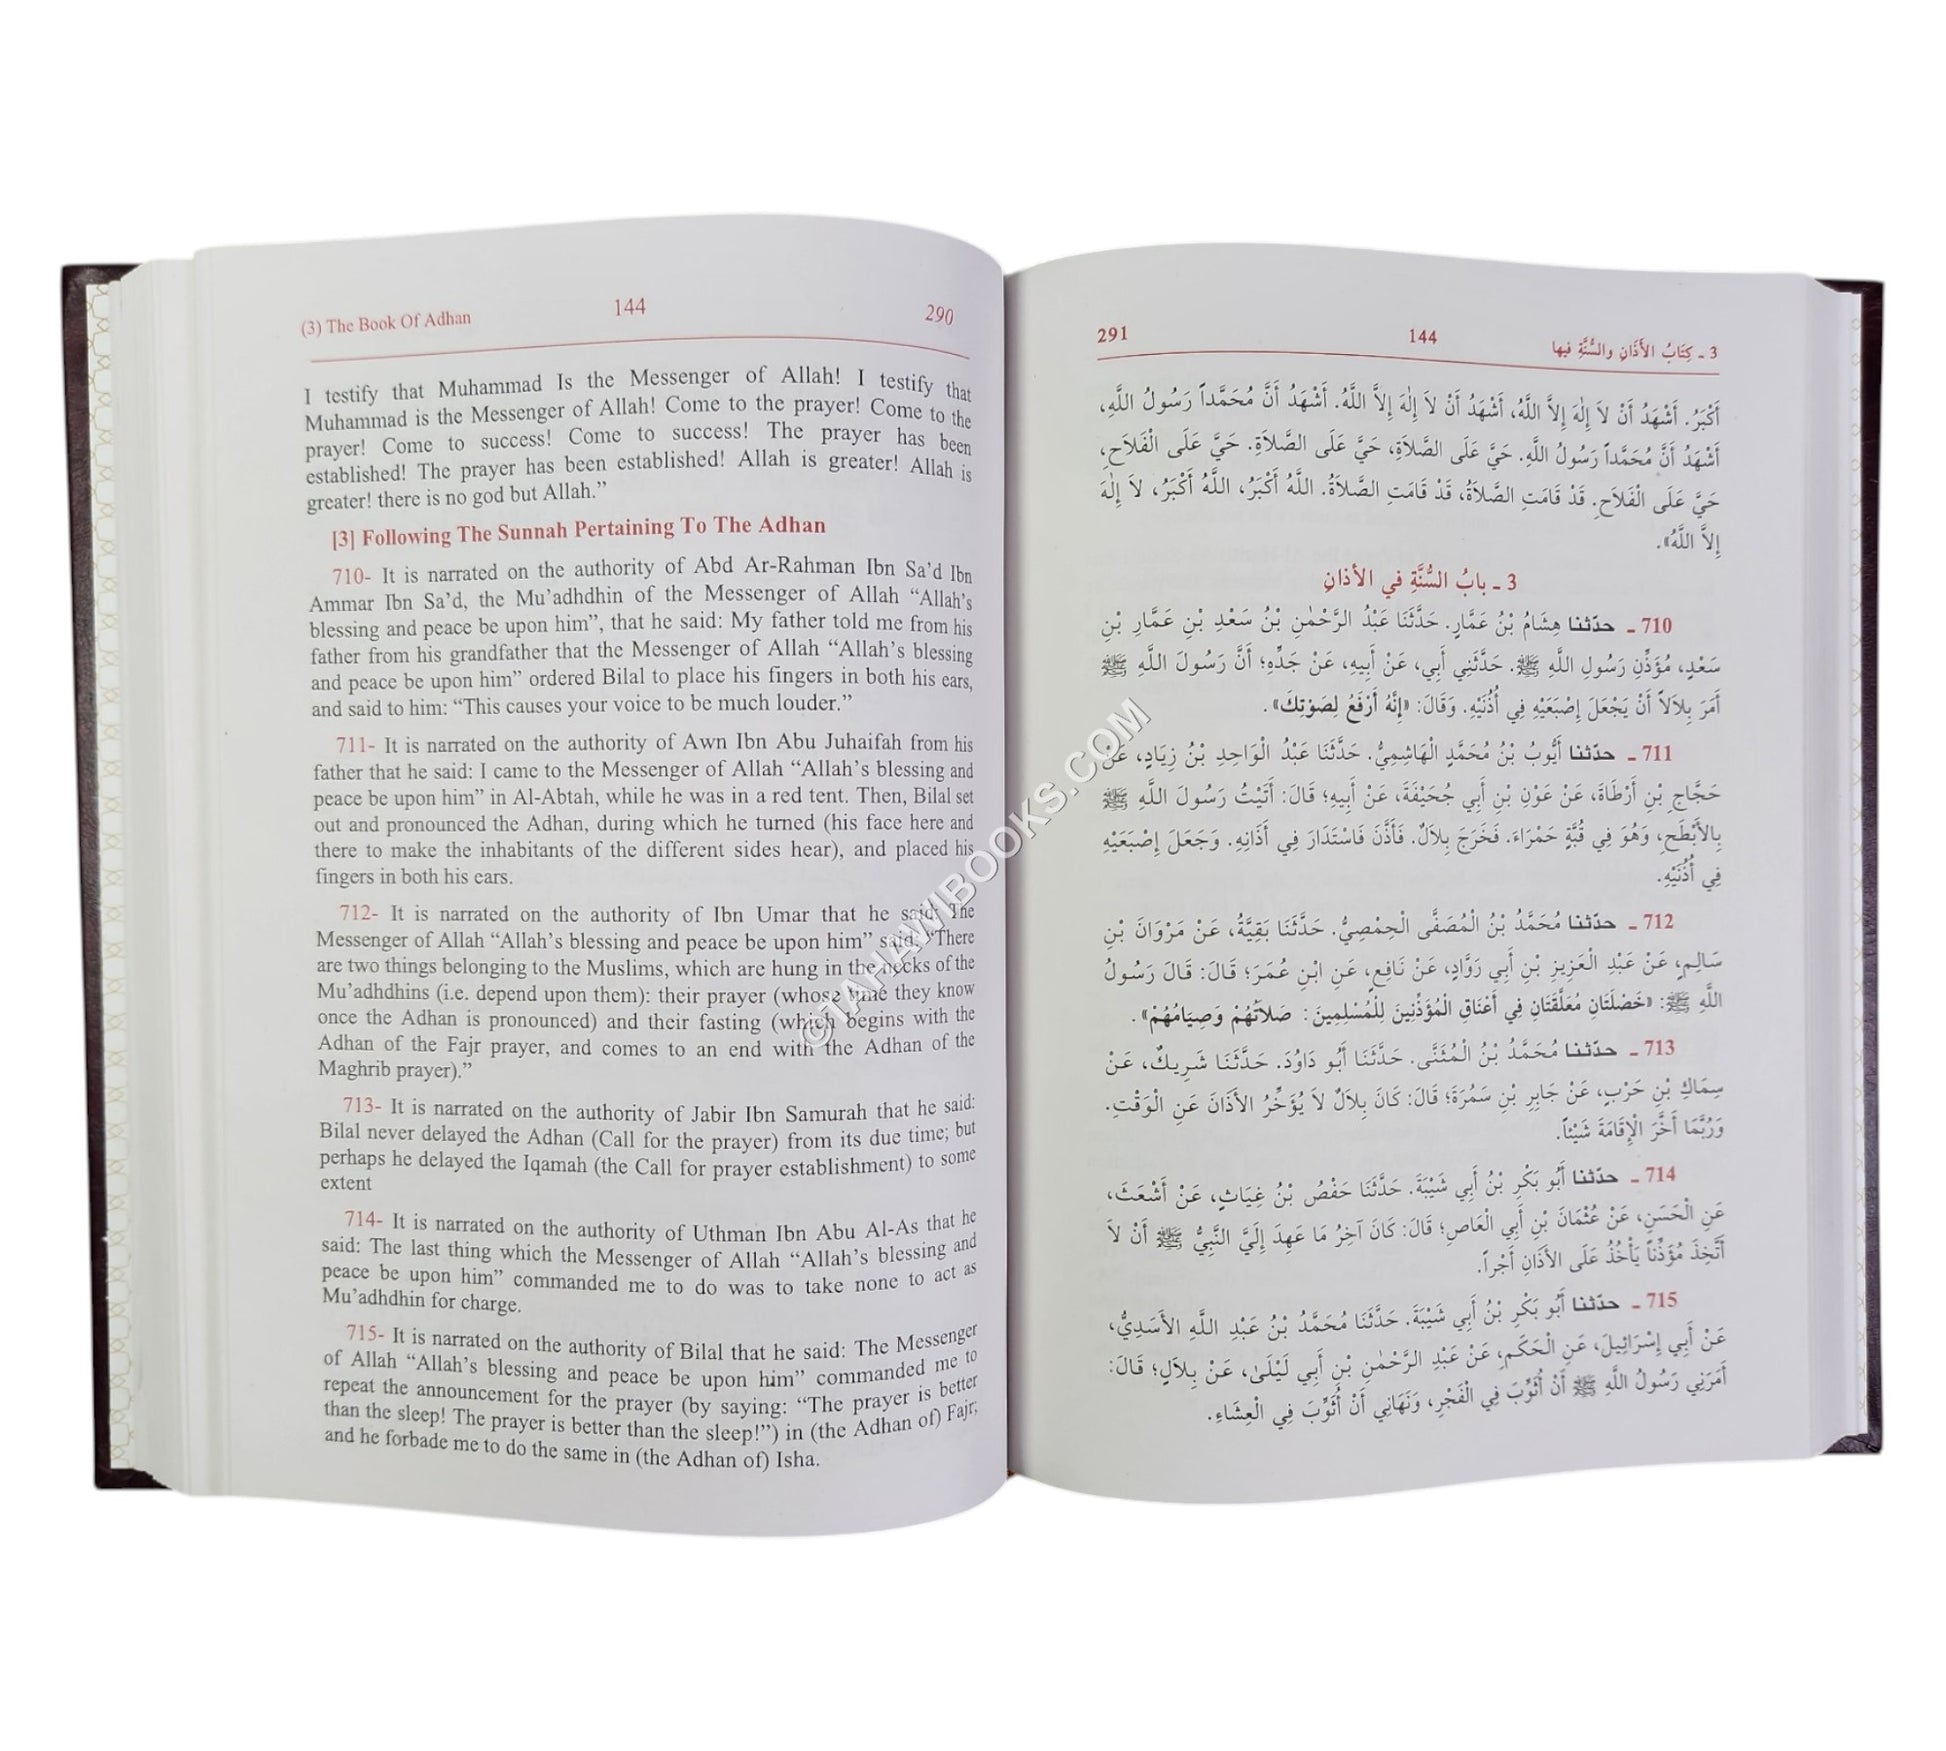 (3) The Book Of Adhan 144 290
I testify that Muhammad Is the Messenger of Allah! I testify that
Muhammad is the Messenger of Allah! Come to the prayer! Come to the
prayer! Come to success! Come to success! The prayer has been
established! The prayer has been established! Allah is greater! Allah is
greater! there is no god but Allah.”
[3] Following The Sunnah Pertaining To The Adhan
710- It is narrated on the authority of Abd Ar-Rahman Ibn Sa’d Ibn
Ammar Ibn Sa’d, the Mu’adhdhin of the Messenger of Allah “Allah’s
blessing and peace be upon him”, that he said: My father told me from his
father from his grandfather that the Messenger of Allah “Allah’s blessing
and peace be upon him” ordered Bilal to place his fingers in both his ears,
and said to him: “This causes your voice to be much louder.”
711- It is narrated on the authority of Awn Ibn Abu Juhaifah from his
father that he said: I came to the Messenger of Allah “Allah’s blessing and
peace be upon him” in Al-Abtah, while he was in a red tent. Then, Bilal set
out and pronounced the Adhan, during which he turned (his face here and
there to make the inhabitants of the different sides hear), and placed his
fingers in both his ears.
712- It is narrated on the authority of Ibn Umar that he said: The
Messenger of Allah “Allah’s blessing and peace be upon him” said: “There
are two things belonging to the Muslims, which are hung in the necks of the
Mu’adhdhins (i.e. depend upon them): their prayer (whose time they know
once the Adhan is pronounced) and their fasting (which begins with the
Adhan of the Fajr prayer, and comes to an end with the Adhan of the
Maghrib prayer).”
713- It is narrated on the authority of Jabir Ibn Samurah that he said:
Bilal never delayed the Adhan (Call for the prayer) from its due time; but
perhaps he delayed the Iqamah (the Call for prayer establishment) to some
extent
714- It is narrated on the authority of Uthman Ibn Abu Al-As that he
said: The last thing which the Messenger of Allah “Allah’s blessing and
peace be upon him” commanded me to do was to take none to act as
Mu’adhdhin for charge.
715- It is narrated on the authority of Bilal that he said: The Messenger
of Allah “Allah’s blessing and peace be upon him” commanded me to
repeat the announcement for the prayer (by saying: “The prayer is better
than the sleep! The prayer is better than the sleep!”) in (the Adhan of) Fajr;
and he forbade me to do the same in (the Adhan of) Isha.
3 ـ كِتَابُ الأَذَانِ والسُّنَّةِ فيها 144 291
أَكْبَرُ. أَشْهَدُ أَنْ لاَ إِلٰهَ إِلاَّ اللَّهُ، أَشْهَدُ أَنْ لاَ إِلٰهَ إِلاَّ اللَّهُ. أَشْهَدُ أَنَّ مُحَمَّداً رَسُولُ اللَّهِ،
أَشْهَدُ أَنَّ مُحَمَّداً رَسُولُ اللَّهِ. حَيَّ عَلَى الصَّلاَةِ، حَيَّ عَلَى الصَّلاَةِ. حَيَّ عَلَى الْفَلاَحِ،
حَيَّ عَلَى الْفَلاَحِ. قَدْ قَامَتِ الصَّلاَةُ، قَدْ قَامَتِ الصَّلاَةُ. اللَّهُ أَكْبَرُ، اللَّهُ أَكْبَرُ، لاَ إِلٰهَ
إِلاَّ اللَّهُ».
3 ـ بابُ السُّنَّةِ في الأذانِ
710 ـ حدّثنا هِشَامُ بْنُ عَمَّارٍ. حَدَّثَنَا عَبْدُ الرَّحْمٰنِ بْنُ سَعْدِ بْنِ عَمَّارِ بْنِ
سَعْدٍ، مُؤَذِّنِ رَسُولِ اللَّهِ ﷺ. حَدَّثَنِي أَبِي، عَنْ أَبِيهِ، عَنْ جَدِّهِ؛ أَنَّ رَسُولَ اللَّهِ ﷺ
أَمَرَ بِلاَلاً أَنْ يَجْعَلَ إِصْبَعَيْهِ فِي أُذُنَيْهِ. وَقَالَ: «إِنَّهُ أَرْفَعُ لِصَوْتِكَ».
711 ـ حدّثنا أَيُّوبُ بْنُ مُحَمَّدٍ الْهَاشِمِيُّ. حَدَّثَنَا عَبْدُ الْوَاحِدِ بْنُ زِيَادٍ، عَنْ
حَجَّاجِ بْنِ أَرْطَاةَ، عَنْ عَوْنِ بْنِ أَبِي جُحَيْفَةَ، عَنْ أَبِيهِ؛ قَالَ: أَتَيْتُ رَسُولَ اللَّهِ ﷺ
بِالأَبْطَحِ، وَهُوَ فِي قُبَّةٍ حَمْرَاءَ. فَخَرَجَ بِلاَلٌ. فَأَذَّنَ فَاسْتَدَارَ فِي أَذَانِهِ. وَجَعَلَ إِصْبَعَيْهِ
فِي أُذُنَيْهِ.
712 ـ حدّثنا مُحَمَّدُ بْنُ الْمُصَفَّى الْحِمْصِيُّ. حَدَّثَنَا بَقِيَّةُ، عَنْ مَرْوَانَ بْنِ
سَالِمٍ، عَنْ عَبْدِ الْعَزِيزِ بْنِ أَبِي رَوَّادٍ، عَنْ نَافِعٍ، عَنِ ابْنِ عُمَرَ؛ قَالَ: قَالَ رَسُولُ
اللَّهِ ﷺ: «خَصْلَتَانِ مُعَلَّقَتَانِ فِي أَعْنَاقِ الْمُؤَذِّنِينَ لِلْمُسْلِمِينَ: صَلاَتُهُمْ وَصِيَامُهُمْ».
713 ـ حدّثنا مُحَمَّدُ بْنُ الْمُثَنَّى. حَدَّثَنَا أَبُو دَاوُدَ. حَدَّثَنَا شَرِيكٌ، عَنْ
سِمَاكِ بْنِ حَرْبٍ، عَنْ جَابِرِ بْنِ سَمُرَةَ؛ قَالَ: كَانَ بِلاَلٌ لاَ يُؤَخِّرُ الأَذَانَ عَنِ الْوَقْتِ.
وَرُبَّمَا أَخَّرَ الإِقَامَةَ شَيْئاً.
714 ـ حدّثنا أَبُو بَكْرِ بْنُ أَبِي شَيْبَةَ. حَدَّثَنَا حَفْصُ بْنُ غِيَاثٍ، عَنْ أَشْعَثَ،
عَنِ الْحَسَنِ، عَنْ عُثْمَانَ بْنِ أَبِي الْعَاصِ؛ قَالَ: كَانَ آخِرُ مَا عَهِدَ إِلَيَّ النَّبِيُّ ﷺ أَنْ لاَ
أَتَّخِذَ مُؤَذِّناً يَأْخُذُ عَلَى الأَذَانِ أَجْراً.
715 ـ حدّثنا أَبُو بَكْرِ بْنُ أَبِي شَيْبَةَ. حَدَّثَنَا مُحَمَّدُ بْنُ عَبْدِ اللَّهِ الأَسَدِيُّ،
عَنْ أَبِي إِسْرَائِيلَ، عَنِ الْحَكَمِ، عَنْ عَبْدِ الرَّحْمٰنِ بْنِ أَبِي لَيْلَىٰ، عَنْ بِلاَلٍ؛ قَالَ:
أَمَرَنِي رَسُولُ اللَّهِ ﷺ أَنْ أُثَوِّبَ فِي الْفَجْرِ، وَنَهَانِي أَنْ أُثَوِّبَ فِي الْعِشَاءِ.
©TAHAWIBOOKS.COM